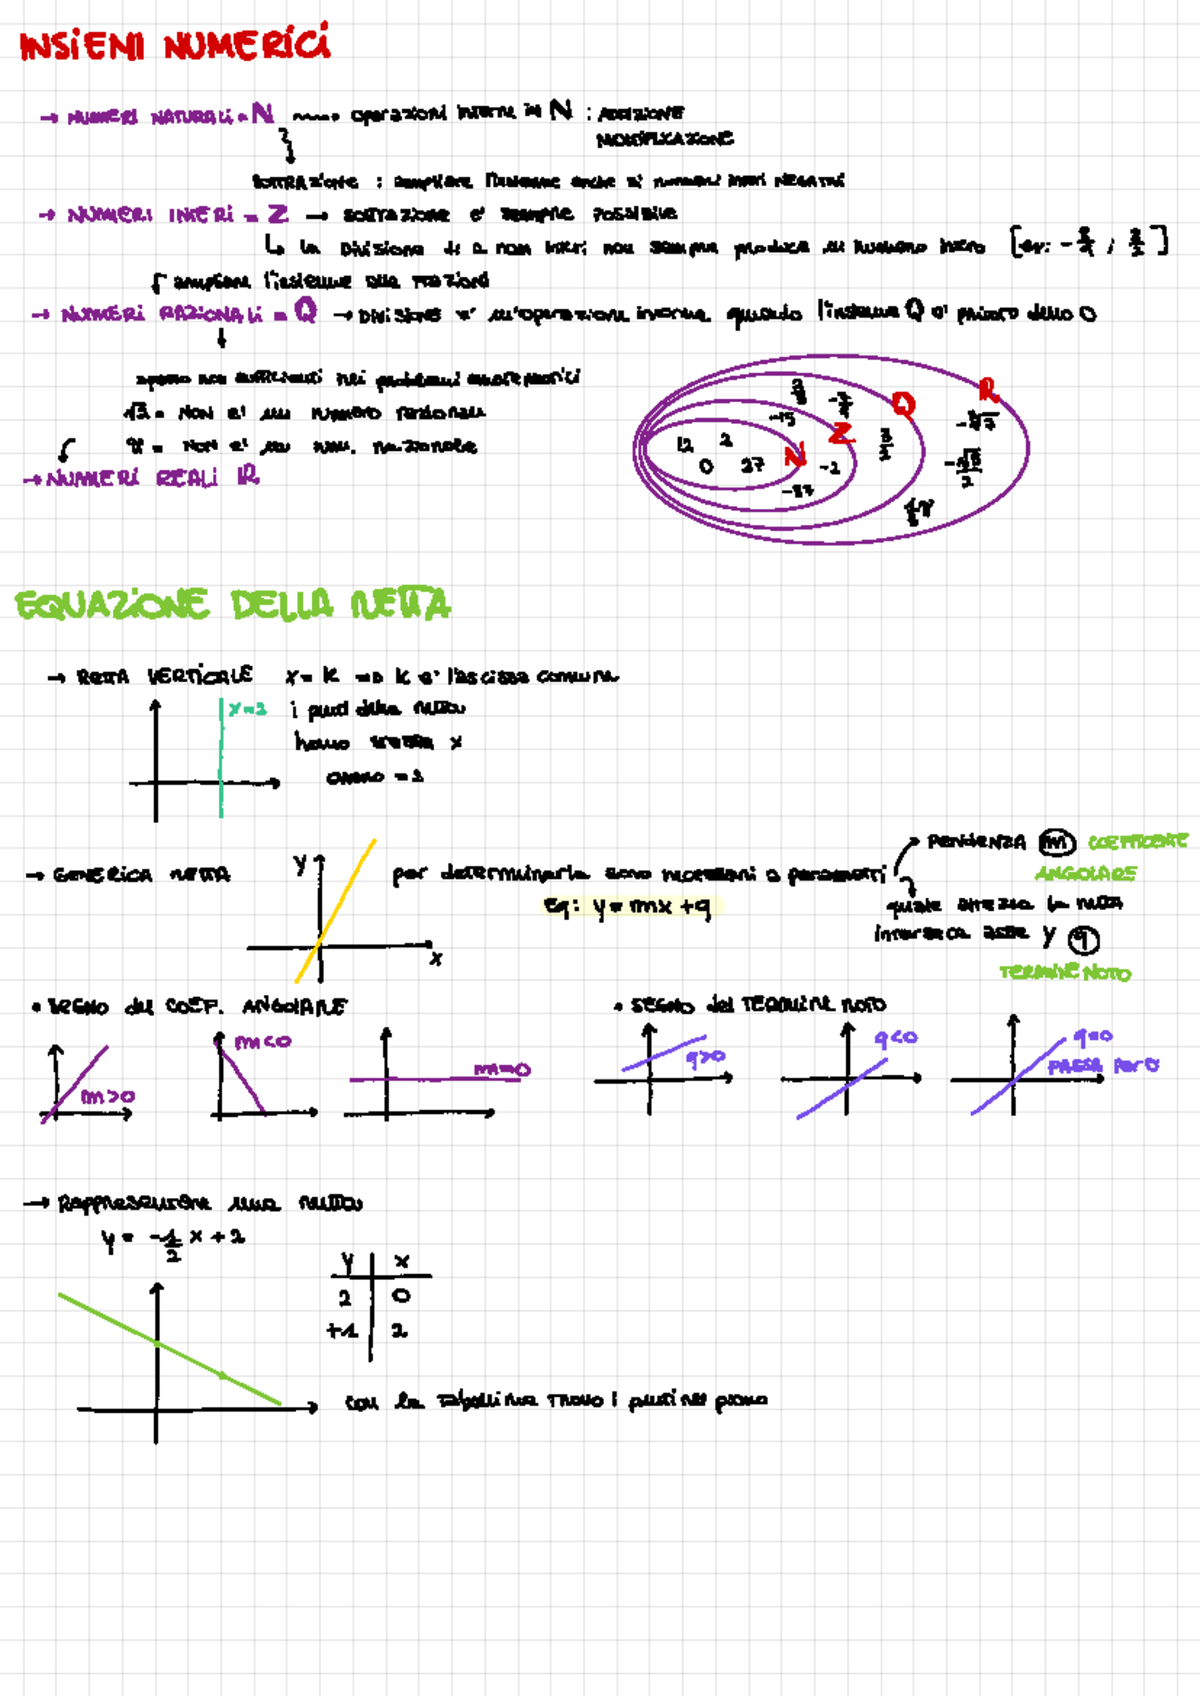 INSIEMI NUMERICI
→ NUMERI NATURALI = N ⟿ operazioni interne in N : ADDIZIONE
MOLTIPLICAZIONE
SOTTRAZIONE : ampliare l'insieme anche ai numeri interi NEGATIVI
→ NUMERI INTERI = Z → SOTTRAZIONE e' SEMPRE POSSIBILE
↳ la Divisione di 2 num interi non sempre produce un numero intero
ampliare l'insieme alle frazioni
→ NUMERI RAZIONALI = Q → DIVISIONE e' un'operazione interna quando l'insieme Q e' privato dello 0
spesso non sufficienti nei problemi
√2 = NON e' un numero razionale
π = NON e' un num. razionale
→ NUMERI REALI IR
12 2 0 27 N
-15 -2 -37 Z
Q
R
EQUAZIONE DELLA RETTA
→ RETTA VERTICALE x = k => k e' l'ascissa comune
x=2 i punti della retta
hanno x
= 2
→ GENERICA RETTA y x per determinarla sono necessari 2 parametri
PENDENZA m COEFFICIENTE
ANGOLARE
Eq: y = mx + q
quale altezza la retta
interseca asse y q
TERMINE NOTO
• SEGNO del COEF. ANGOLARE
m>0 m<0 m=0
• SEGNO del TERMINE NOTO
q>0 q<0 q=0
PASSA per 0
→ Rappresentazione una retta
y = -1/2 x + 2
y x
2 0
+1 2
con la tabellina trovo i punti nel piano